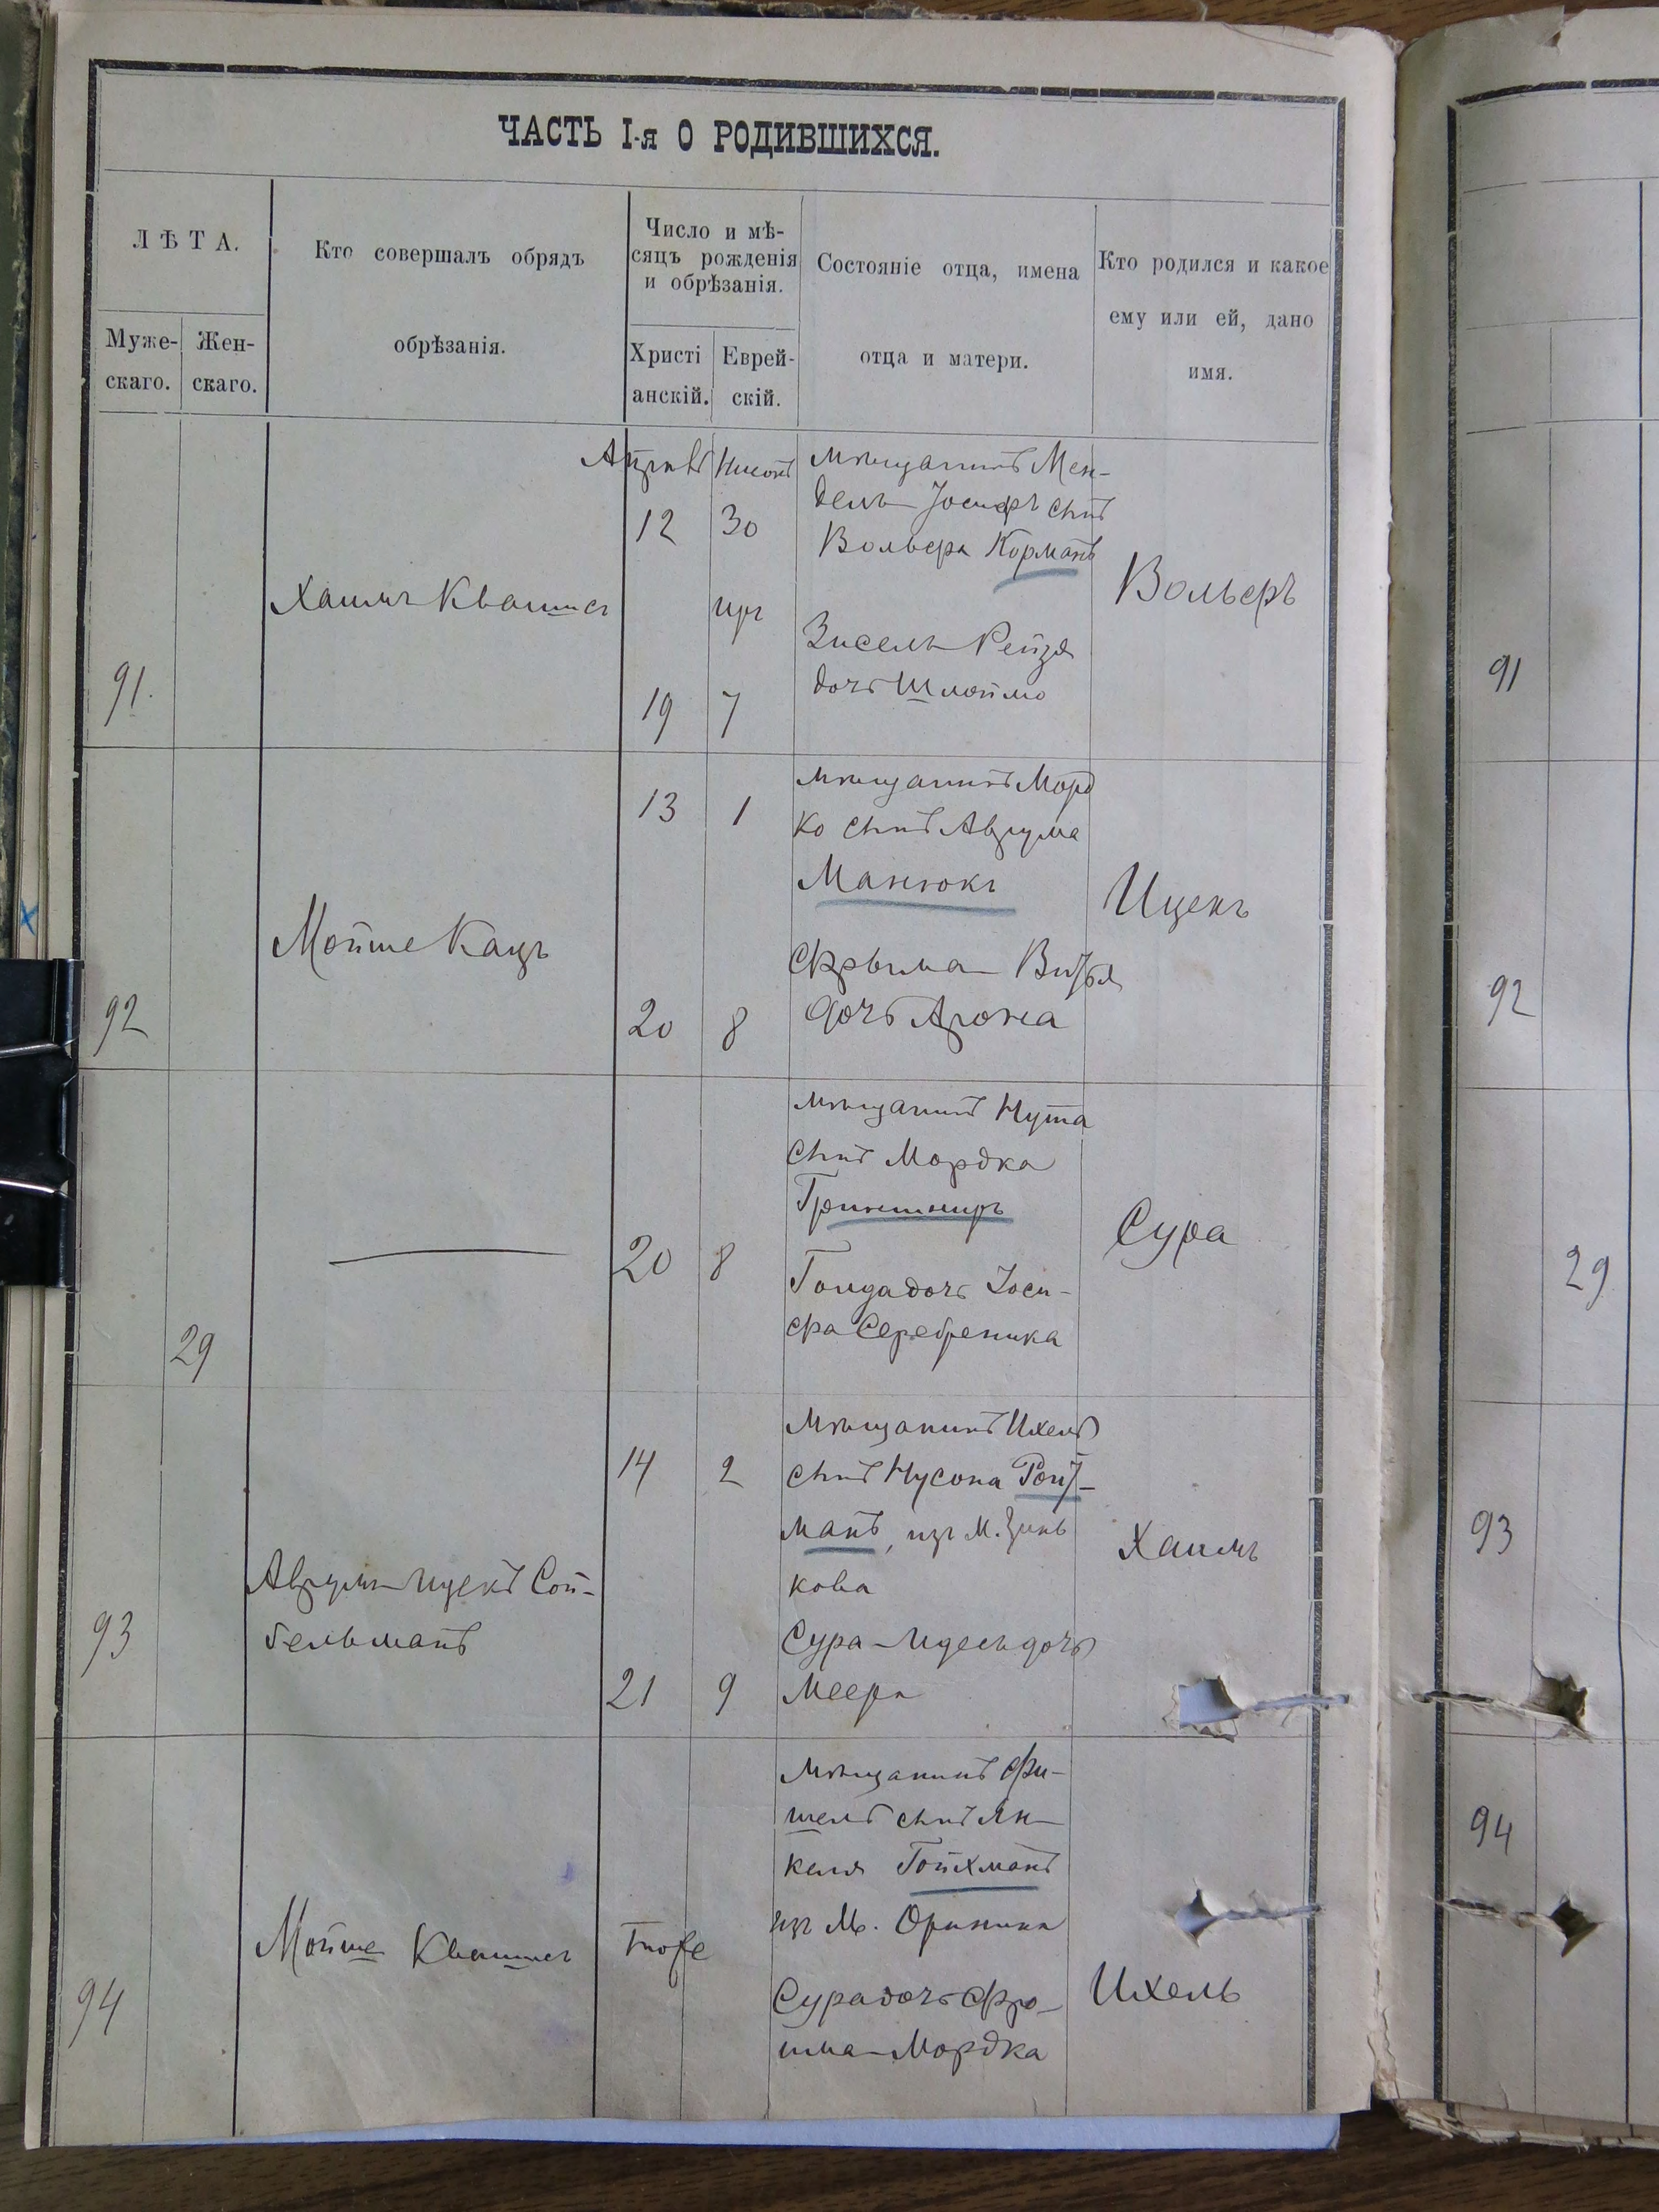 ЧАСТЬ I-я О РОДИВШИХСЯ.
ЛѢТА.
Муже-
скаго.
Жен-
скаго.
Кто совершалъ обрядъ
обрѣзанія.
Число и мѣ-
сяцъ рожденія
и обрѣзанія.
Христі
анскій.
Еврей-
скій.
Состояніе отца, имена
отца и матери.
Кто родился и какое
ему или ей, дано
имя.
91.
Хаимъ
12
30
19
7
мѣщанинъ Мен-
дель Іосифъ сынъ
Вольфа Корманъ
Зисель Рейзя
дочь Шлоймо
Вольфъ
91
92
Мойше Кацъ
13
1
20
8
мѣщанинъ Морд
ко сынъ Аврума
Манюкъ
дочь Арона
Ицекъ
92
29
20
8
мѣщанинъ Нута
сынъ Мордка
дочь Іоси-
фа Серебреника
Сура
29
93
Аврумъ Ицекъ Сой-
бельманъ
14
2
21
9
мѣщанинъ Ихель
сынъ Нусона Рой-
манъ, изъ М. Зинь
кова
Сура-Идесь дочь
Меера
Хаимъ
93
94
Мойше
Тоже
мѣщанинъ Фи-
шель сынъ Ян-
келя Гойхманъ
изъ М. Оринина
Сура дочь Фро-
има-Мордка
Ихель
94